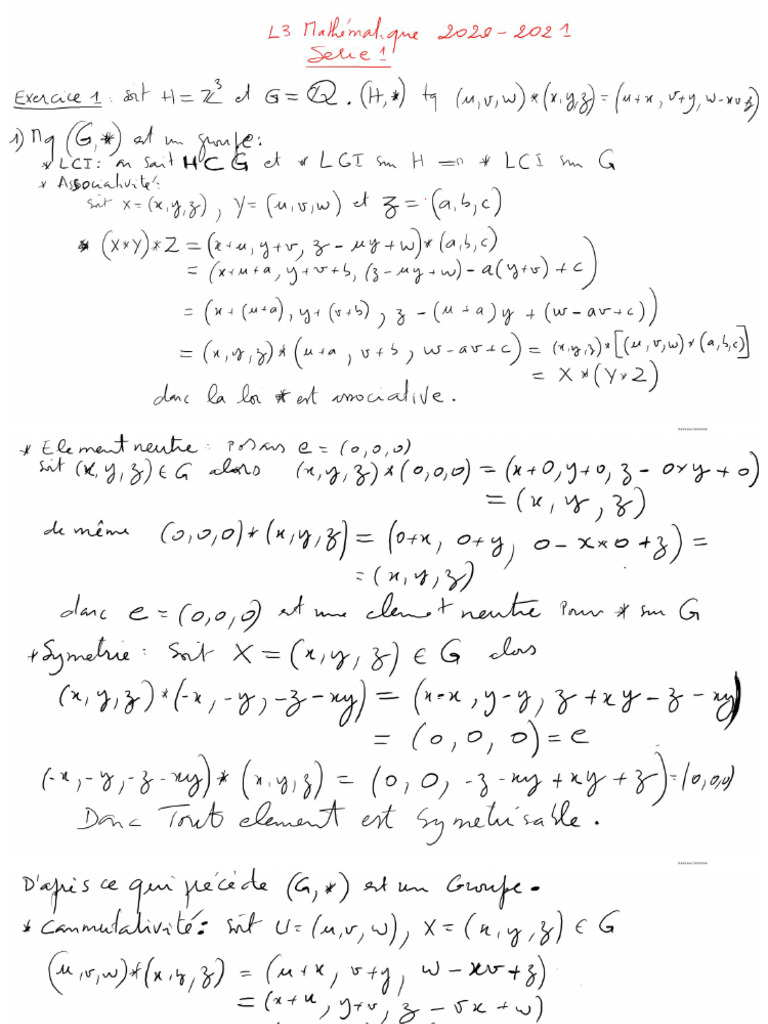 L3 Mathématique 2020-2021
Serie 1
Exercice 1 : soit H = Z³ et G = Q. (H,*) tq (u,v,w)*(x,y,z)=(u+x, v+y, w-xv+z)
1) Mq (G,*) est un groupe:
* LCI: on sait H⊂G et * LCI sur H => * LCI sur G
* Associativité:
soit X=(x,y,z), Y=(u,v,w) et Z=(a,b,c)
* (X*Y)*Z = (x+u, y+v, z-uy+w)*(a,b,c)
= (x+u+a, y+v+b, (z-uy+w)-a(y+v)+c)
= (x+(u+a), y+(v+b), z-(u+a)y+(w-av+c))
= (x,y,z)*(u+a, v+b, w-av+c) = (x,y,z)*[(u,v,w)*(a,b,c)]
= X*(Y*Z)
donc la loi * est associative.
* Element neutre: Posons e = (0,0,0)
soit (x,y,z)∈G alors (x,y,z)*(0,0,0) = (x+0, y+0, z-0×y+0)
= (x, y, z)
de même (0,0,0)*(x,y,z) = (0+x, 0+y, 0-x*0+z) =
= (x,y,z)
donc e = (0,0,0) est une element neutre pour * sur G
* Symetrie: Soit X = (x,y,z) ∈ G alors
(x,y,z)*(-x,-y,-z-xy) = (x-x, y-y, z+xy-z-xy)
= (0,0,0) = e
(-x,-y,-z-xy)*(x,y,z) = (0,0,-z-xy+xy+z)=(0,0,0)
Donc Tout element est Symetrisable.
D'après ce qui précéde (G,*) est un Groupe.
* Commutativité: soit U=(u,v,w), X=(x,y,z) ∈ G
(u,v,w)*(x,y,z) = (u+x, v+y, w-xv+z)
= (x+u, y+v, z-vx+w)